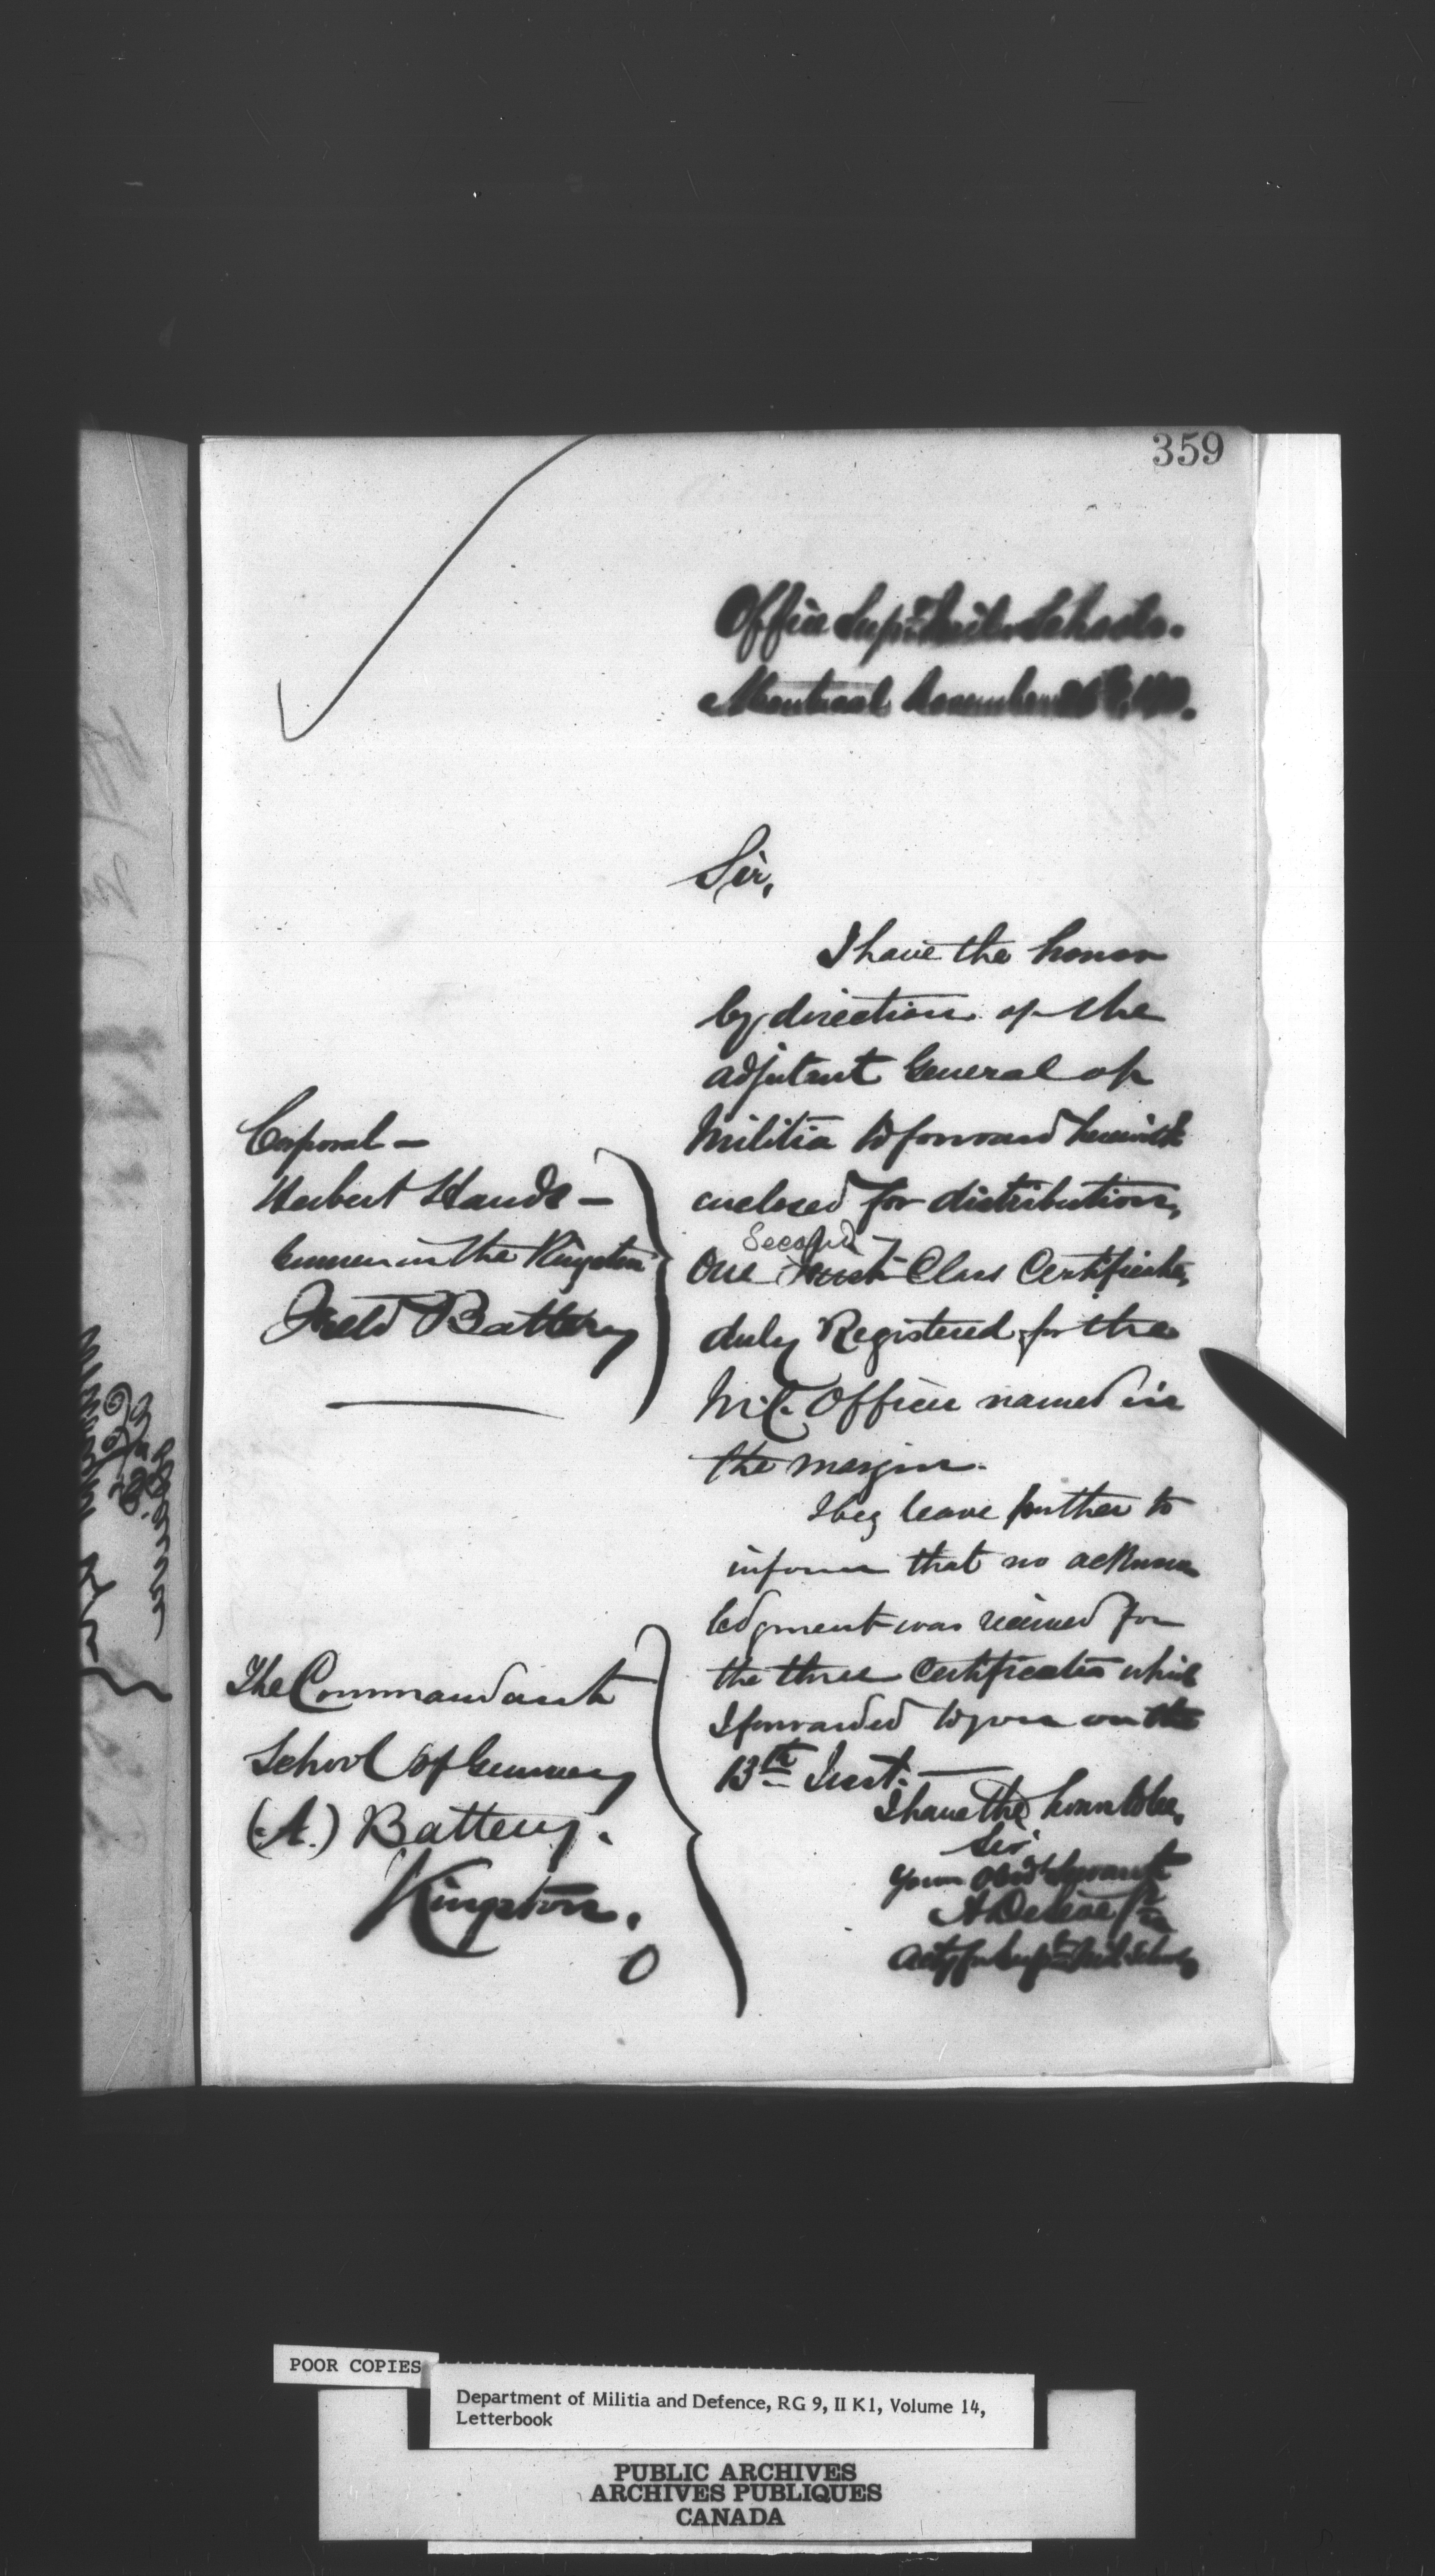 359
Office Supt. Mil. Schools.
Montreal
Sir,
I have the honor
by direction of the
Adjutant General of
Militia to forward herewith
enclosed for distribution,
Second
One First Class Certificate,
duly Registered for the
N.C. Officer named in
the margin.
I beg leave further to
inform that no acknow
ledgment was received for
the three Certificates which
I forwarded to you on the
13th Inst.
I have the honor to be,
Sir
Your Obdt Servant
Corporal —
Herbert Hands —
Gunner in the Kingston
Field Battery
The Commandant
School of Gunnery
(A.) Battery.
Kingston.
POOR COPIES
Department of Militia and Defence, RG 9, II K1, Volume 14,
Letterbook
PUBLIC ARCHIVES
ARCHIVES PUBLIQUES
CANADA